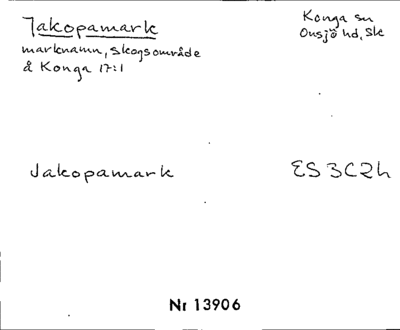 Jakopamark
marknamn, skogsområde
å Konga 17:1
Konga sn
Onsjö hd, Sk
Jakopamark
ES 3C2h
Nr 13906